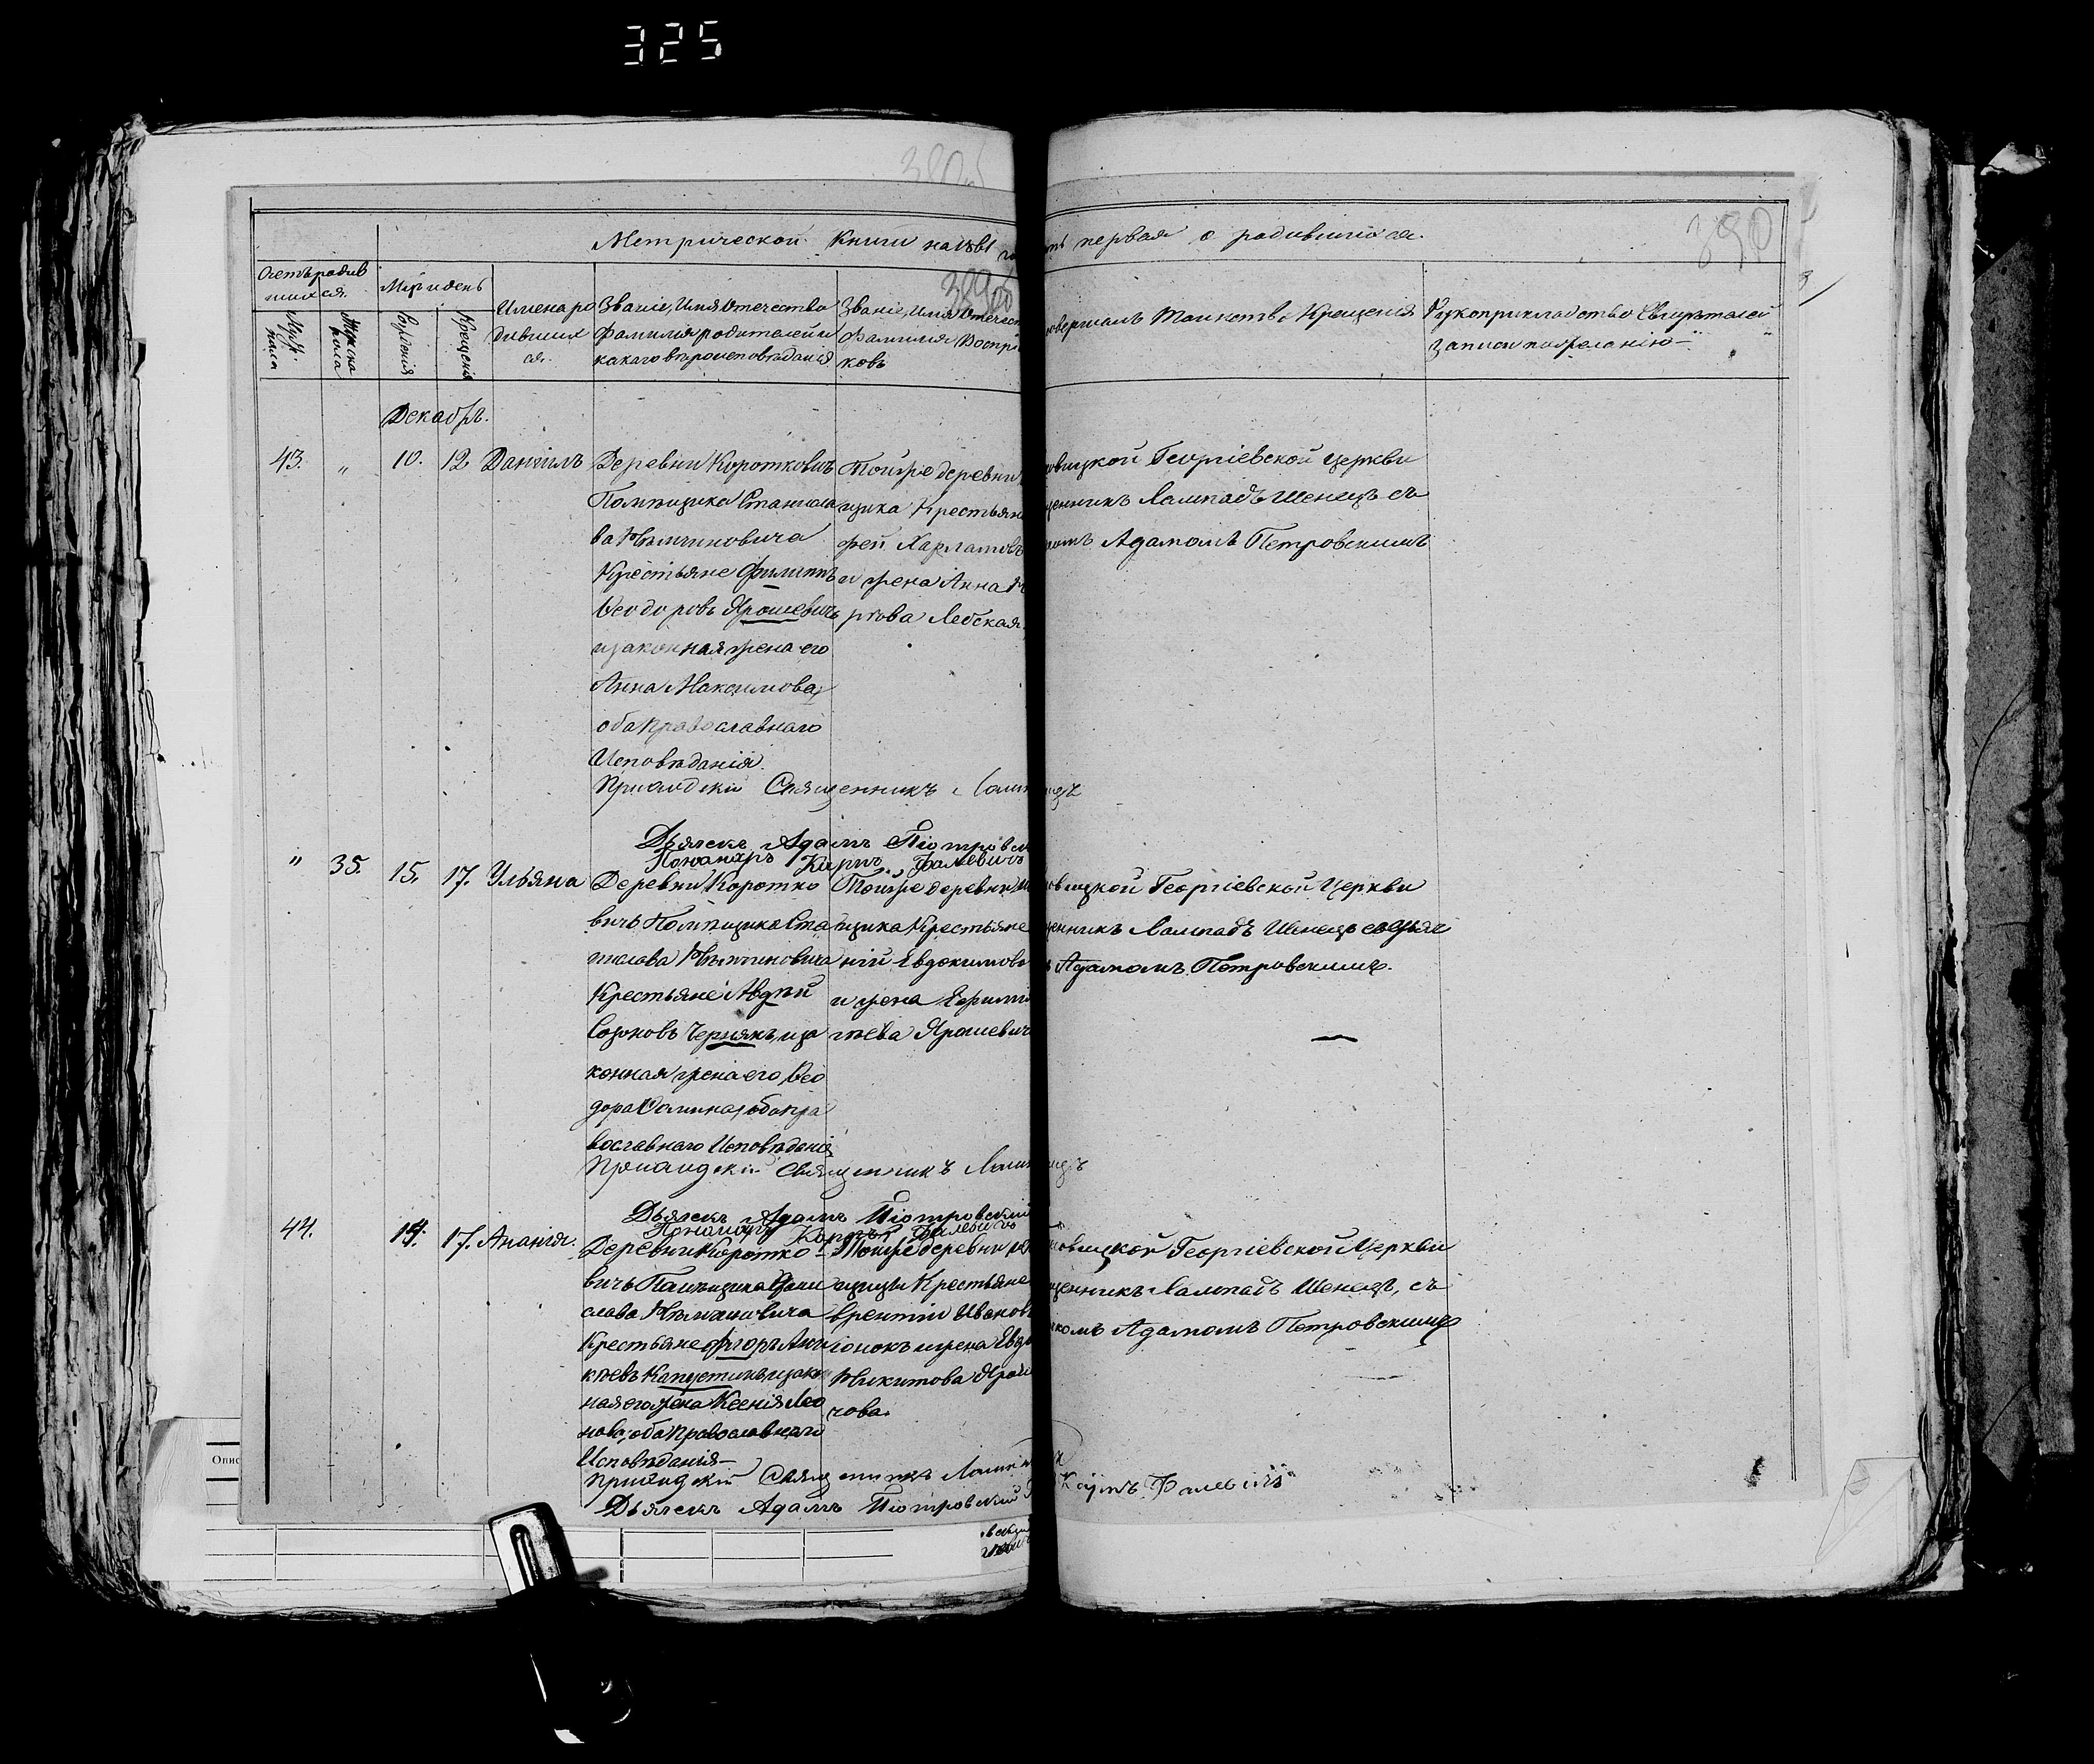 325
390
Метрической Книги на 1851 го
ть первая о родившихся.
Счетъ родив
шихся.
Мѣс. и день
Имена ро
дивших
ся.
Званіе, Имя Отечество
Фамилія родителей и
какаго вѣроисповѣданія
Званіе, Имя Отечест
Фамилія Воспрі
ковъ
совершалъ Таинство Крещенія
Рукоприкладство Свидѣтелей
записи по желанію
Муж.
пола
Женска
пола
Рожденія
Крещенія
Декабрь.
43. " 10. 12 Даніилъ
Деревни Короткович
Помѣщика Станисла
ва Нѣмчиновича
Крестьяне Филиппъ
Ѳеодоровъ Ярошевичъ
и законная жена его
Анна Максимова
оба Православнаго
Исповѣданія.
Тойже деревни
щика Крестьян
фей Харламовъ
и жена Анна
рѣова Лебская
овицкой Георгіевской церкви
щенникъ Лампадъ Шенецъ съ
комъ Адамомъ Петровскимъ
Приходскій Священникъ
Дьячекъ Адамъ Піотровс
Пономарь Карпъ Фалевичъ
" 35. 15. 17. Ульяна
Деревни Коротко
вичъ Помѣщика Ста
нислава Нѣмчиновича
Крестьяне Авдѣй
Созоновъ Чернякъ, и за
конная жена его Ѳео
дора Ѳомина, оба пра
вославнаго Исповѣданія
Тойже деревни
щика Крестьяне
ній Евдокимовъ
и жена Ефими
тѣева Ярошевич
овицкой Георгіевской Церкви
щенникъ Лампадъ Шенецъ съ дьяч
Адамомъ Петровскимъ.
Приходскій Священникъ
Дьячекъ Адамъ Піотровский
Пономарь Карпъ Фалевичъ
44. 14. 17. Ананія.
Деревни Коротко
вичъ Помѣщика Стани
слава Нѣмчиновича
Крестьяне Игорь Ани
кѣевъ Капустинъ и закон
ная его жена Ксенія Лео
нова, оба Православнаго
Исповѣданія
Тойже деревни
щицы Крестьяне
врентій Иванов
жена Евд
Никитова Ярош
чова.
новицкой Георгіевской Церкви
щенникъ Лампадъ Шенецъ, съ
комъ Адамомъ Петровскимъ
Приходскій Священникъ
Дьячекъ Адамъ Піотровский
Карпъ Фалевичъ
Опис